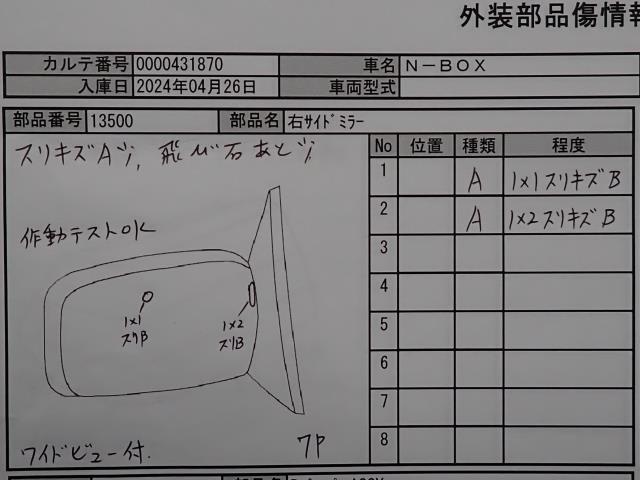 外装部品傷情報
カルテ番号 0000431870 車名 N－BOX
入庫日 2024年04月26日 車両型式
部品番号 13500 部品名 右サイドミラー
スリキズA
飛び石あと
作動テストOK
1×1
スリB
1×2
スリB
ワイドビュー付.
7P
No 位置 種類 程度
1 A 1×1スリキズB
2 A 1×2スリキズB
3
4
5
6
7
8